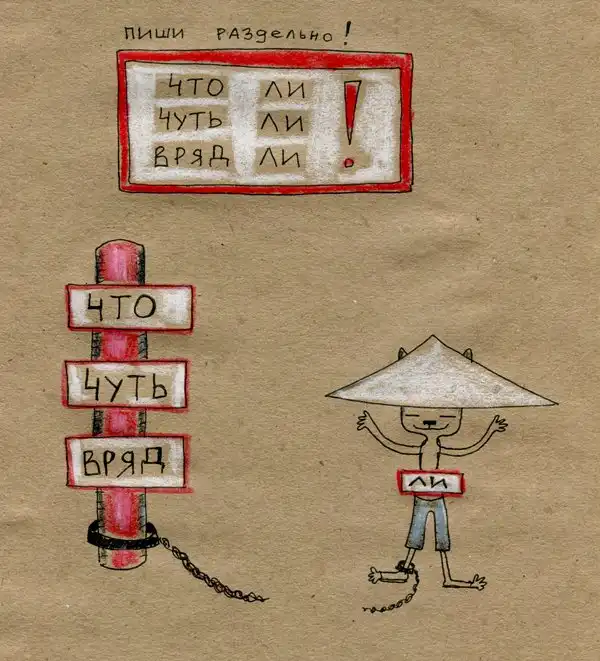 пиши раздельно!
ЧТО ЛИ
ЧУТЬ ЛИ
ВРЯД ЛИ
!
ЧТО
ЧУТЬ
ВРЯД
ЛИ